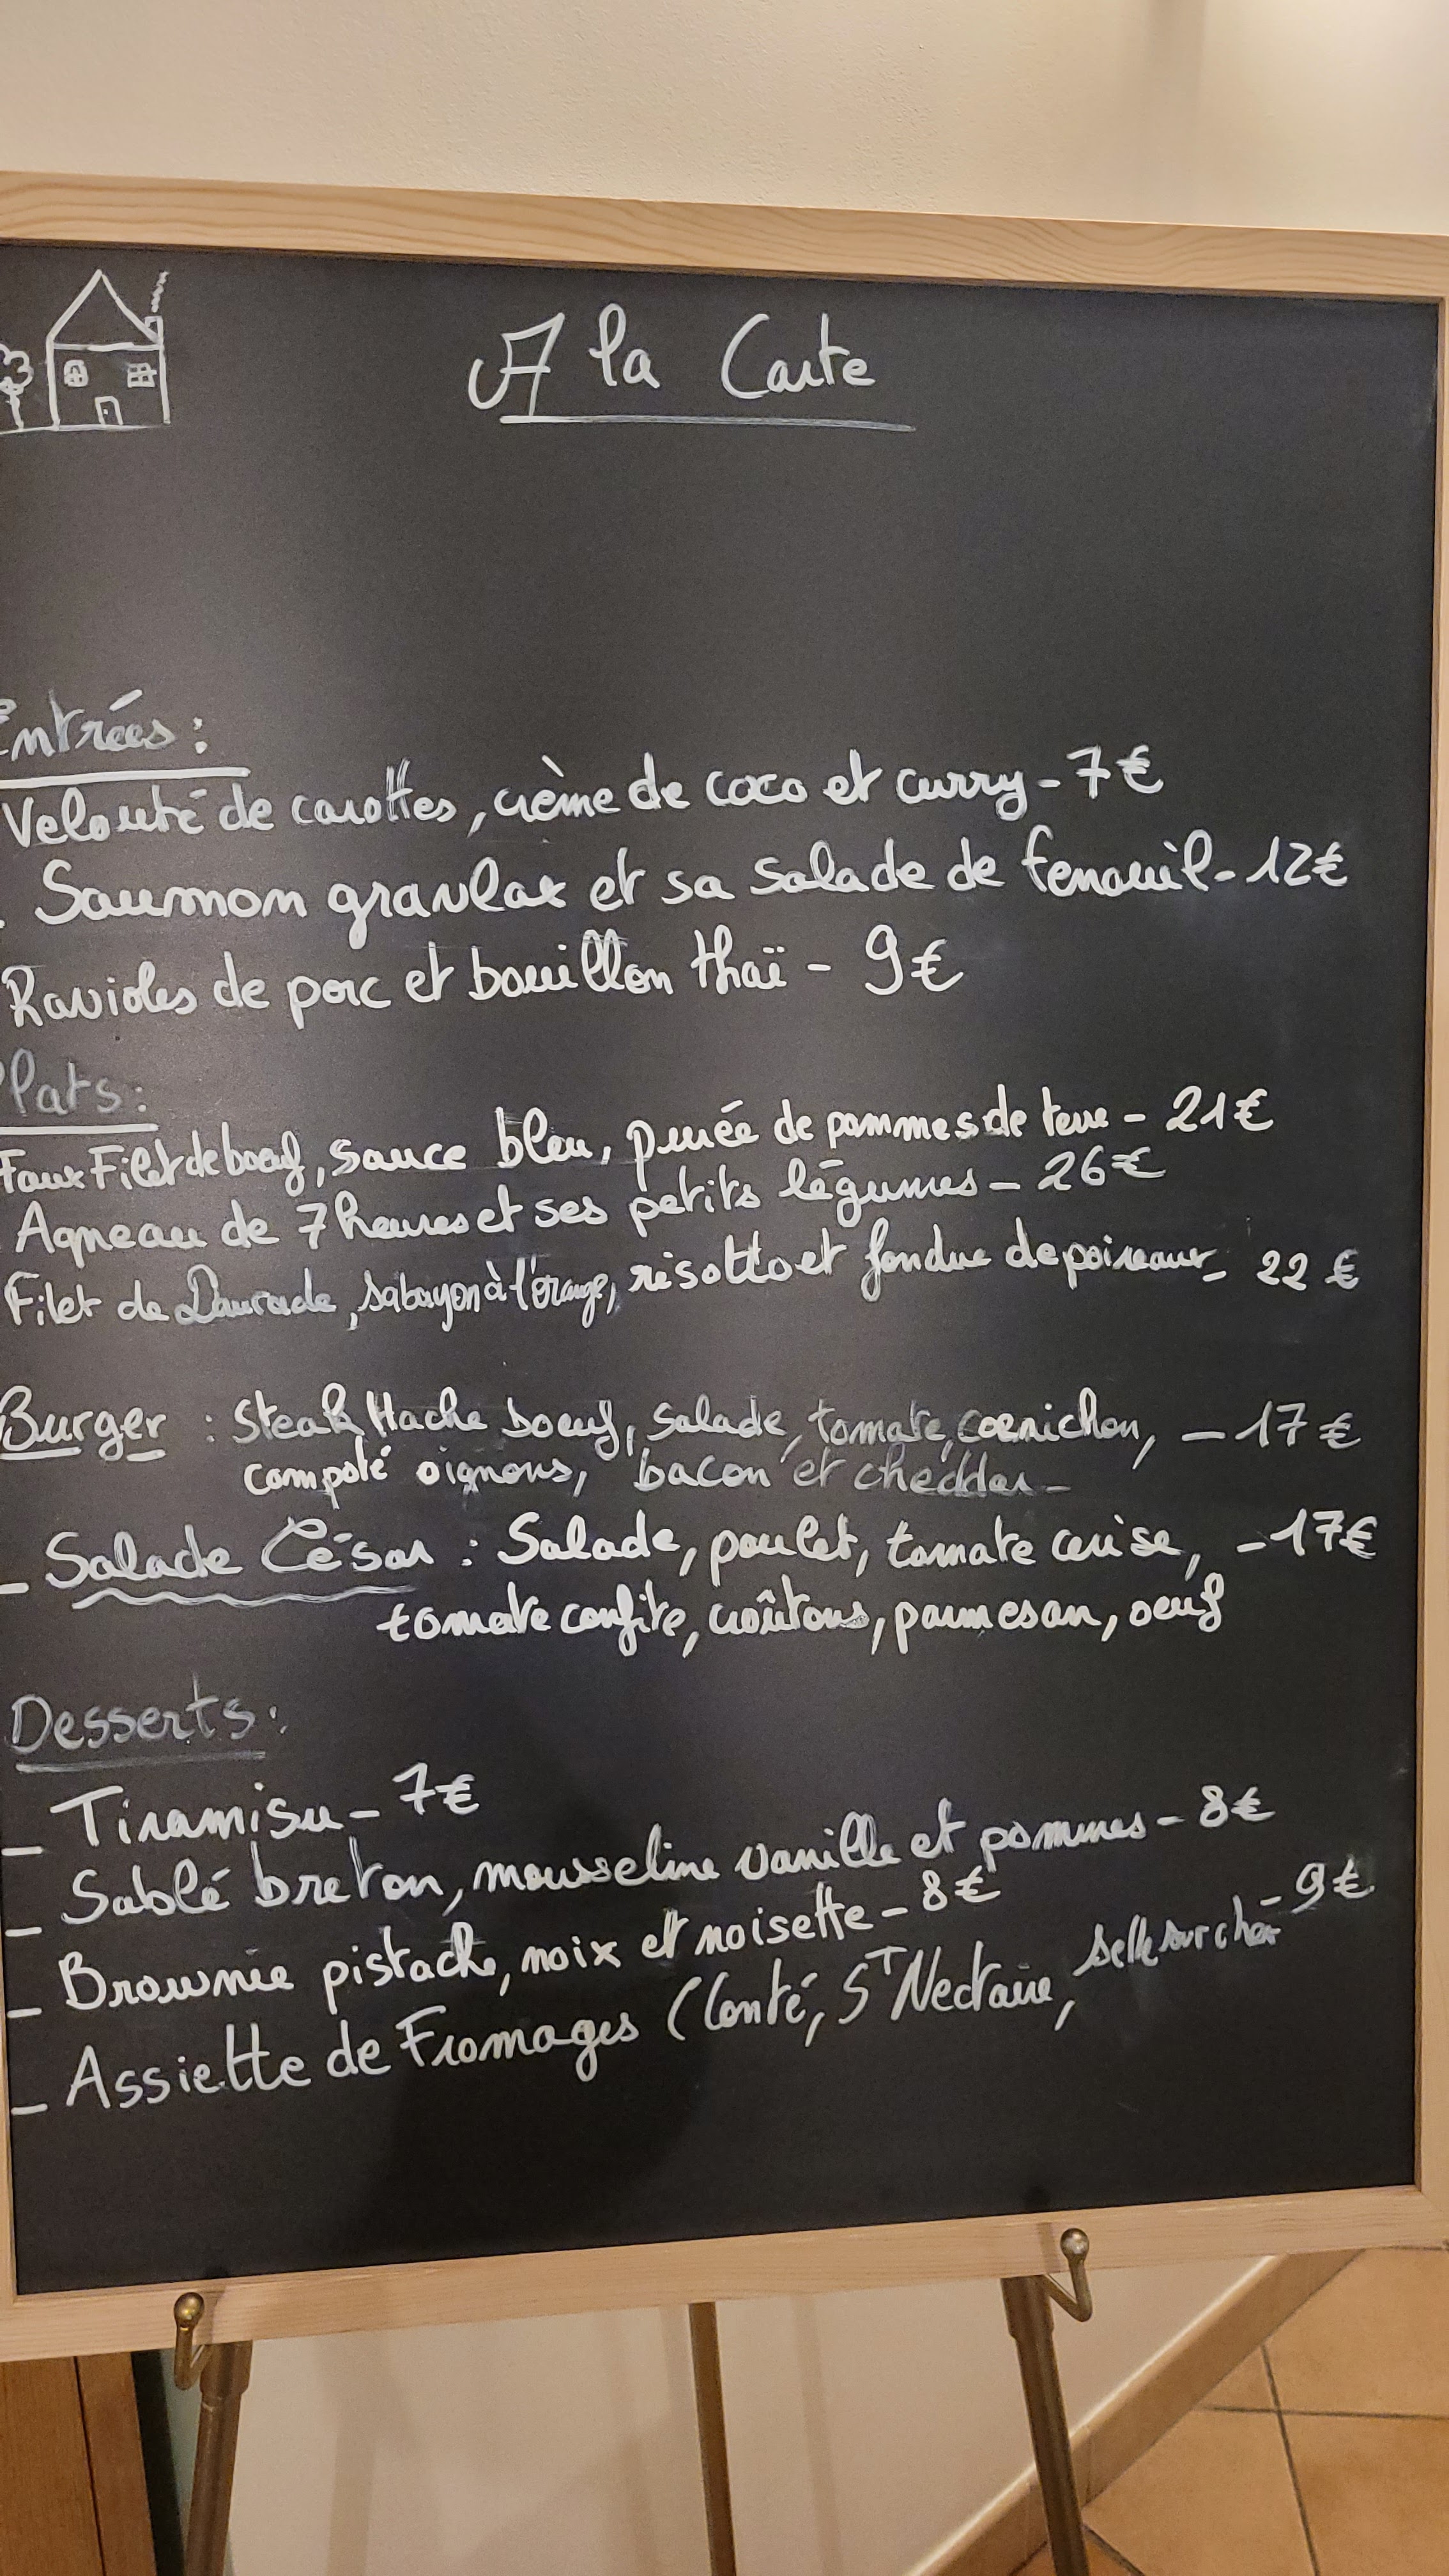 A la Carte
Entrées :
Velouté de carottes, crème de coco et curry - 7€
Saumon gravlax et sa salade de fenouil - 12€
Ravioles de porc et bouillon thaï - 9€
Plats :
Faux Filet de boeuf, sauce bleu, purée de pommes de terre - 21€
Agneau de 7 heures et ses petits légumes - 26€
Filet de Daurade, sabayon à l'orange, risotto et fondue de poireaux - 22€
Burger : Steak Haché boeuf, salade, tomate, cornichon, - 17€
compoté oignons, bacon et cheddar -
- Salade César : Salade, poulet, tomate cerise, - 17€
tomate confite, croûtons, parmesan, oeuf
Desserts :
- Tiramisu - 7€
- Sablé breton, mousseline vanille et pommes - 8€
- Brownie pistache, noix et noisette - 8€
- Assiette de Fromages (Conté, St Nectaire, selle sur cher - 9€